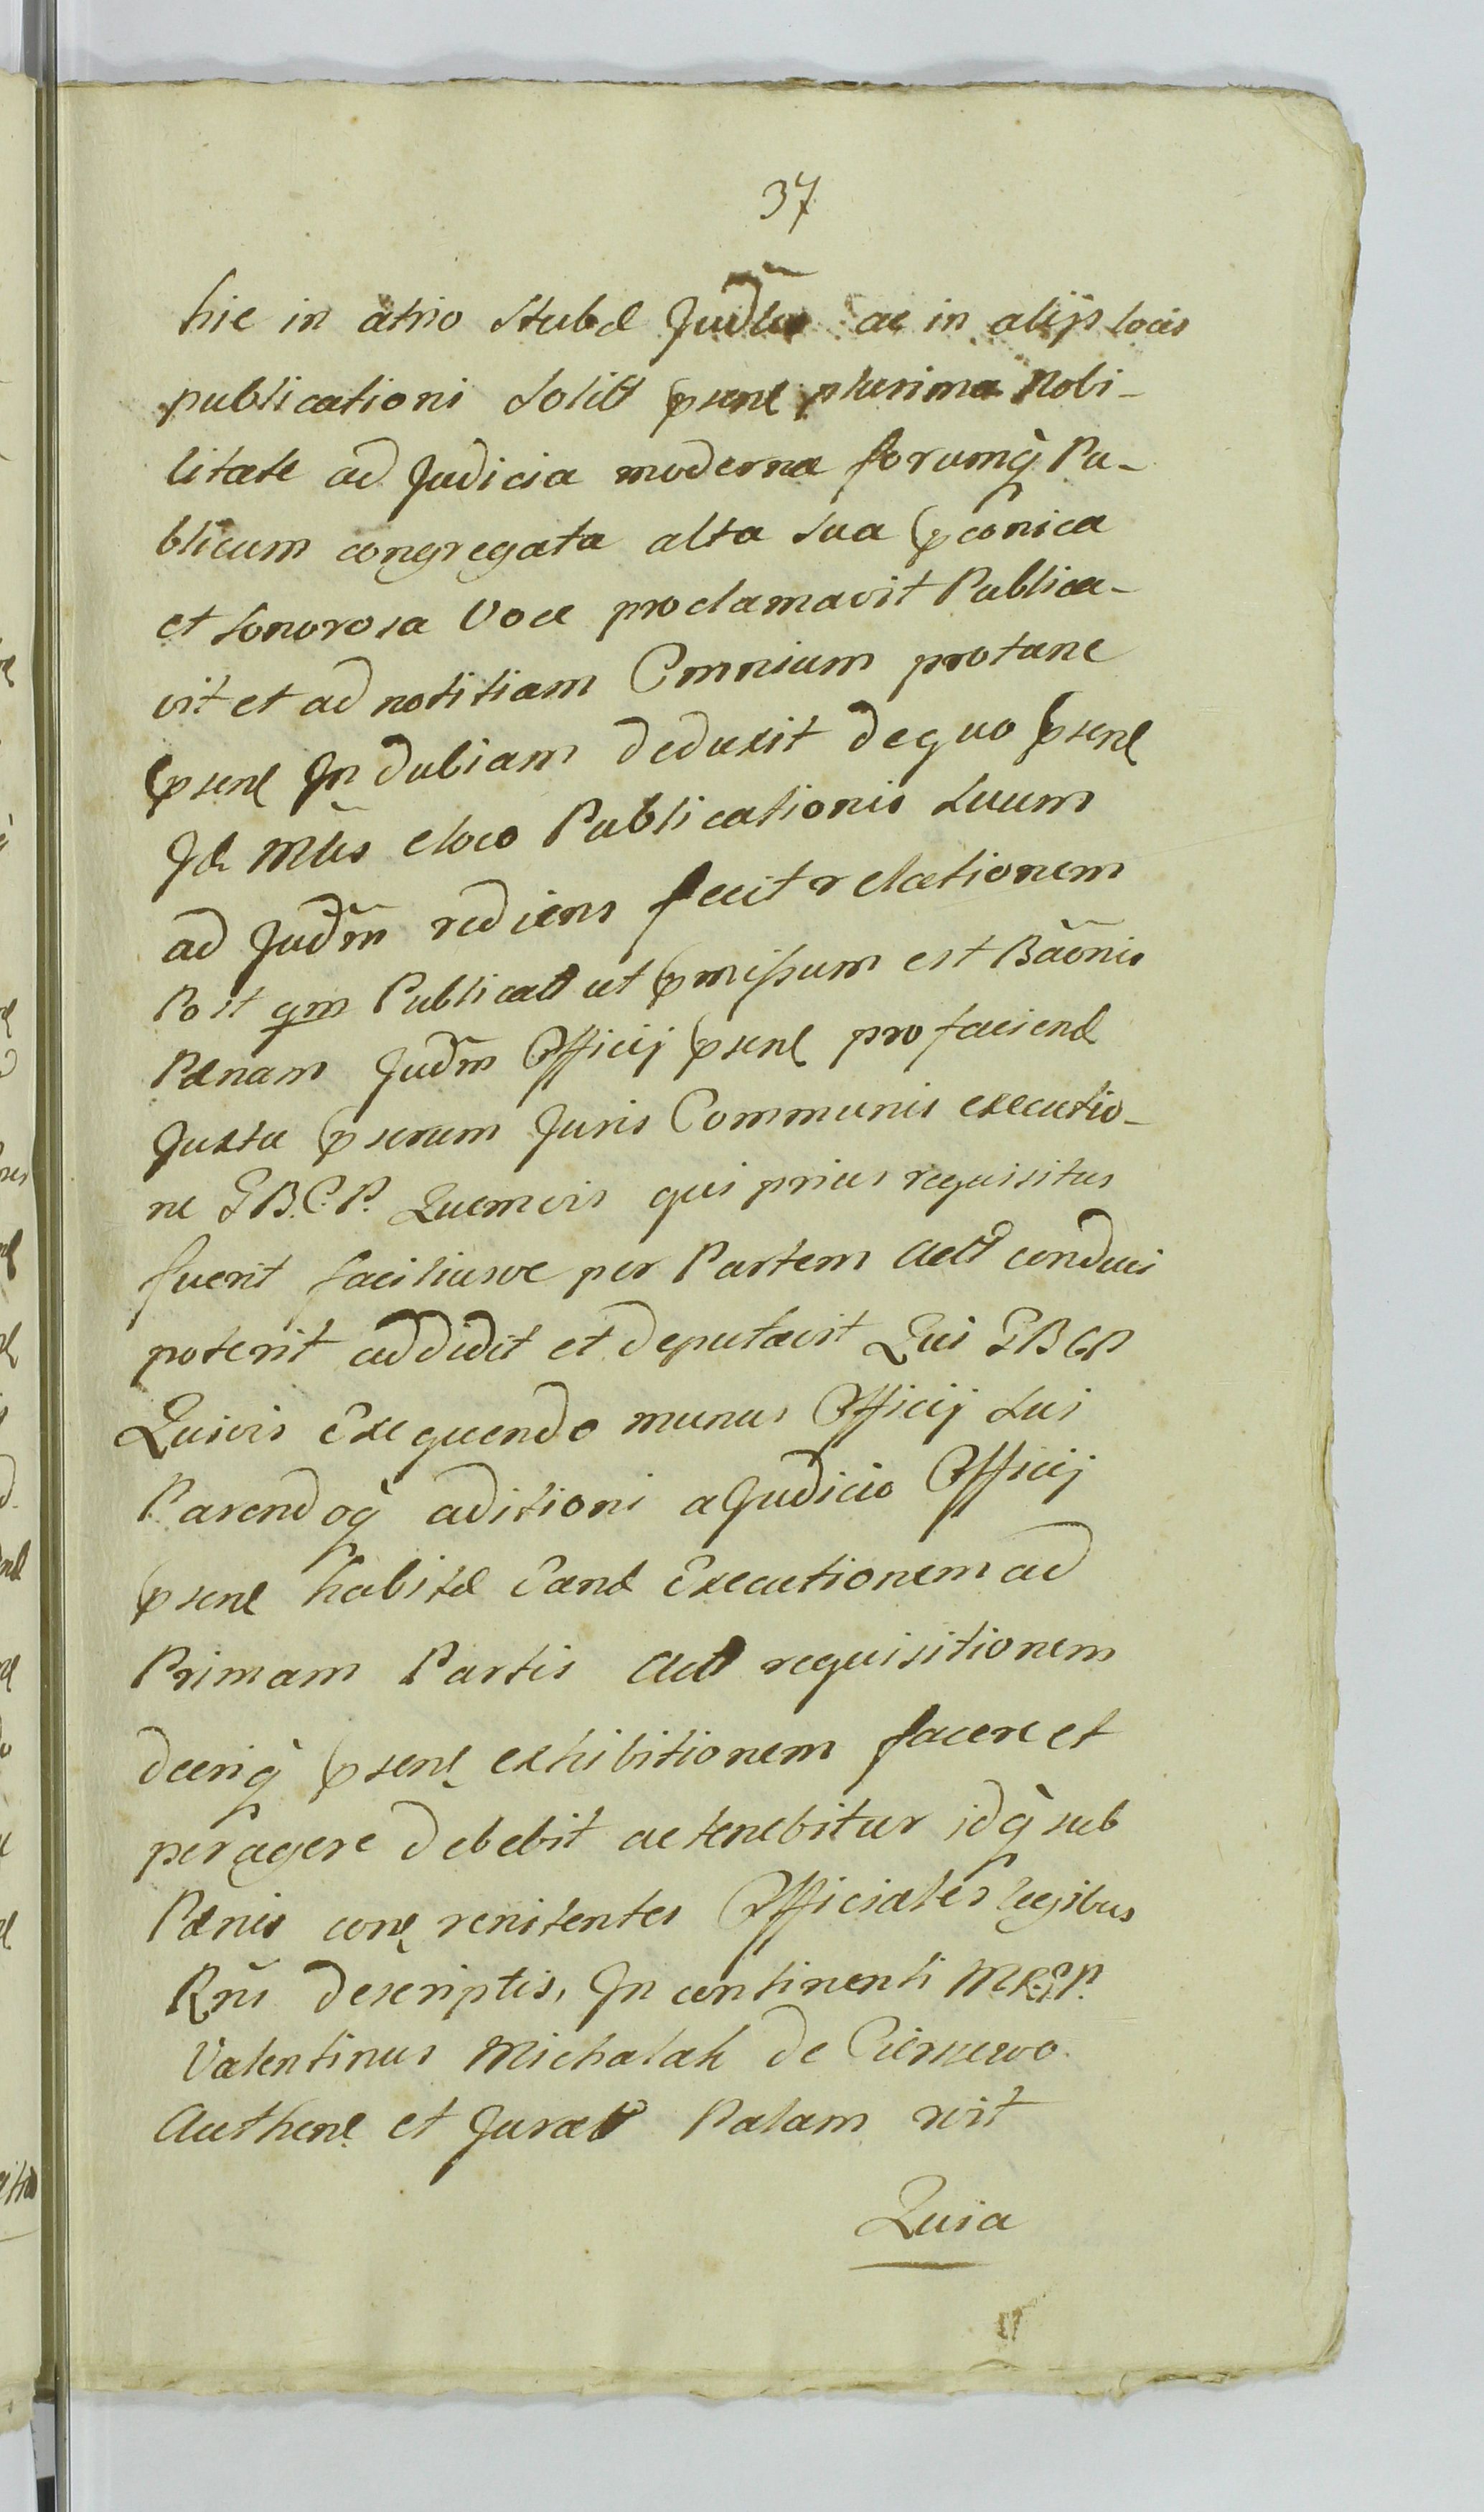 37
hic in atrio Stubæ Judlis ac in alijs locis
publicationi solitt psent plurima Nobi-
litate ad Judicia moderna forumq̀ Pu-
blicum congregata alta sua pconica
et sonorosa Voce proclamavit Publica-
vit et ad notitiam Omnium protunc
psent Indubiam deduxit dequo psent
Id Mlis eloco Publicationis suum
ad Judm rediens fecit relationem
Post qm Publicatt ut pmissum est Bãonis
Pænam Judm Officij psent pro faciend
Juxta pscrum Juris Communis executio-
ne G.B.C.P. Quemvis qui prius requisitus
fuerit faciliusve per Partem Actt conduci
poterit addidit et deputavit Qui GBCP
Quivis Exequendo munus Officij sui
Parendoq̀ aditioni a Judicio Officij
psent habitæ Eand Executionem ad
Primam Partis Actt requisitionem
decriq̀ psent exhibitionem facere et
peragere debebit ac tenebitur idq̀ sub
Pænis cont renitentes Officiales legibus
Rñi descriptis, In continenti MRGP.
Valentinus Michalak de
Authent et Juratt Palam rvit
Quia